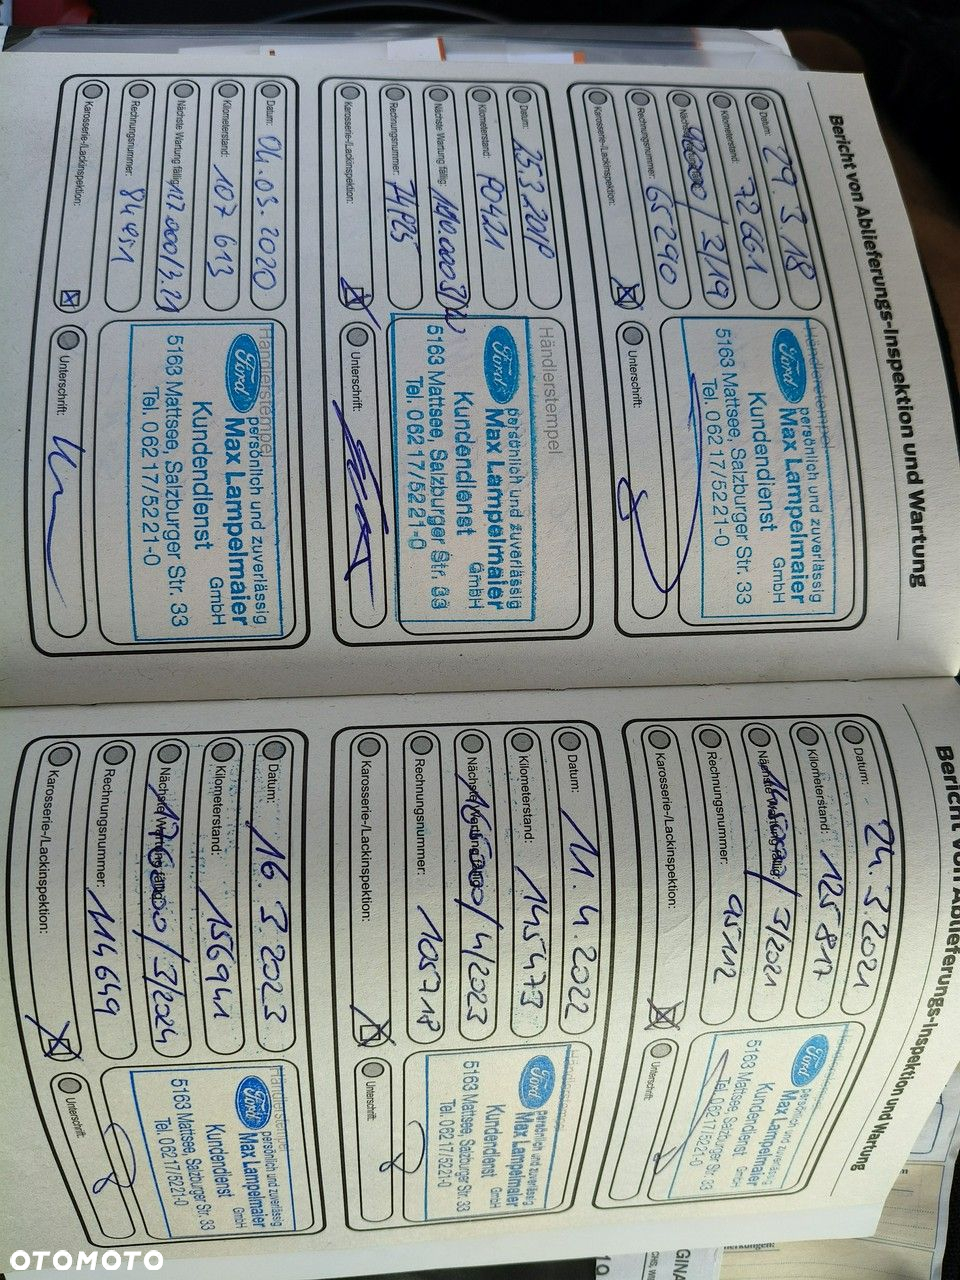 Bericht von Ablieferungs-Inspektion und Wartung
Datum: 29.3.18
Kilometerstand: 72661
/ 3/19
Rechnungsnummer: 65290
Karosserie-/Lackinspektion:
Händlerstempel
Ford
persönlich und zuverlässig
Max Lampelmaier
GmbH
Kundendienst
5163 Mattsee, Salzburger Str. 33
Tel. 06217/5221-0
Unterschrift:
Datum: 25.3.2019
Kilometerstand: 90421
Nächste Wartung fällig:
Rechnungsnummer:
Karosserie-/Lackinspektion:
Händlerstempel
Ford
persönlich und zuverlässig
Max Lampelmaier
GmbH
Kundendienst
5163 Mattsee, Salzburger Str. 33
Tel. 06217/5221-0
Unterschrift:
Datum: 04.03.2020
Kilometerstand: 107 613
Nächste Wartung fällig: 127.000/3.21
Rechnungsnummer: 84951
Karosserie-/Lackinspektion:
Händlerstempel
Ford
persönlich und zuverlässig
Max Lampelmaier
GmbH
Kundendienst
5163 Mattsee, Salzburger Str. 33
Tel. 06217/5221-0
Unterschrift:
Bericht von Ablieferungs-Inspektion und Wartung
Datum: 24.3.2021
Kilometerstand: 125817
Nächste Wartung fällig:
Rechnungsnummer: 95112
Karosserie-/Lackinspektion:
Ford
persönlich und zuverlässig
Max Lampelmaier
GmbH
Kundendienst
5163 Mattsee, Salzburger Str. 33
Tel. 06217/5221-0
Unterschrift:
Datum: 11.4.2022
Kilometerstand: 145473
Nächste Wartung fällig: 165000/4/2023
Rechnungsnummer: 105718
Karosserie-/Lackinspektion:
Händlerstempel
Ford
persönlich und zuverlässig
Max Lampelmaier
GmbH
Kundendienst
5163 Mattsee, Salzburger Str. 33
Tel. 06217/5221-0
Unterschrift:
Datum: 16.3.2023
Kilometerstand: 156941
Nächste Wartung fällig: 176000/3/2024
Rechnungsnummer: 114649
Karosserie-/Lackinspektion:
Händlerstempel
Ford
persönlich und zuverlässig
Max Lampelmaier
GmbH
Kundendienst
5163 Mattsee, Salzburger Str. 33
Tel. 06217/5221-0
Unterschrift:
OTOMOTO